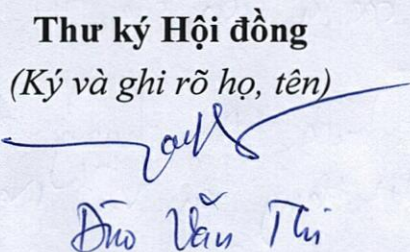 Thư ký Hội đồng
(Ký và ghi rõ họ, tên)
Đào Văn Thi